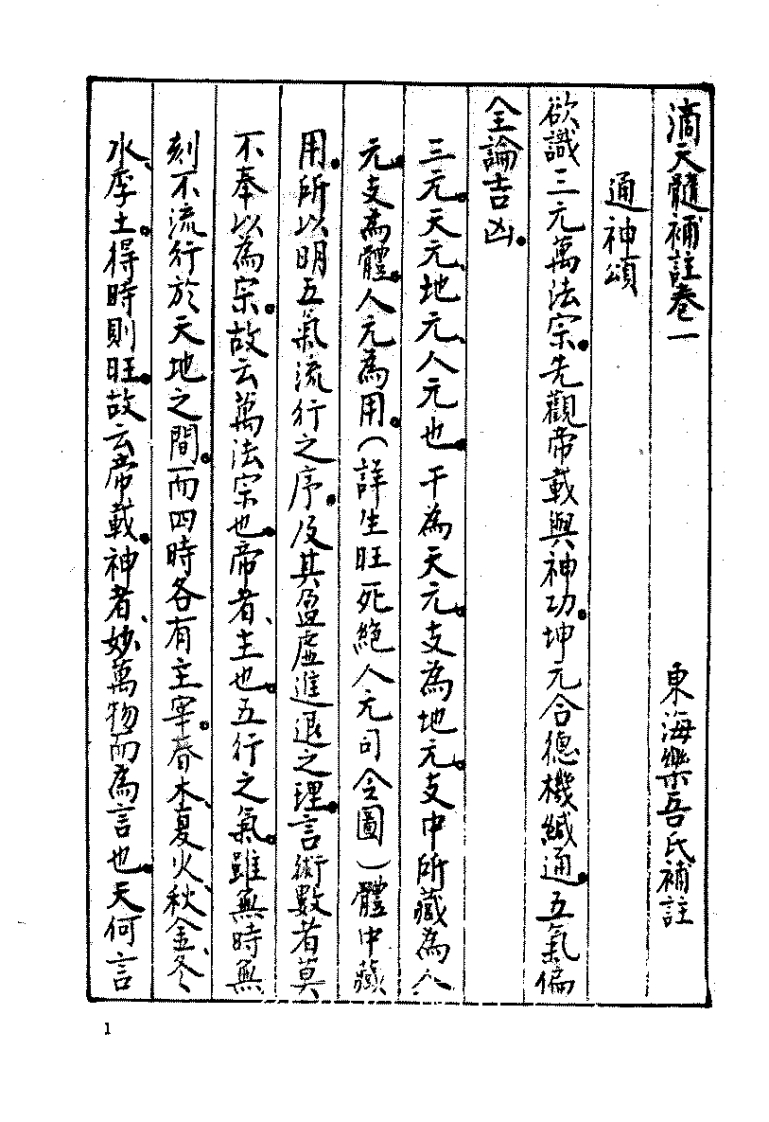 滴天髓補註卷一　東海樂吾氏補註
通神頌
欲識三元萬法宗。先觀帝載與神功。坤元合德機緘通。五氣偏
全論吉凶。
三元。天元、地元、人元也。干為天元。支為地元。支中所藏為人
元。支為體。人元為用。（詳生旺死絕人元司令圖）體中藏
用。所以明五氣流行之序。及其盈虛進退之理。言術數者莫
不奉以為宗。故云萬法宗也。帝者、主也。五行之氣。雖無時無
刻不流行於天地之間。而四時各有主宰。春木、夏火、秋金、冬
水、季土。得時則旺。故云帝載。神者、妙萬物而為言也。天何言
1